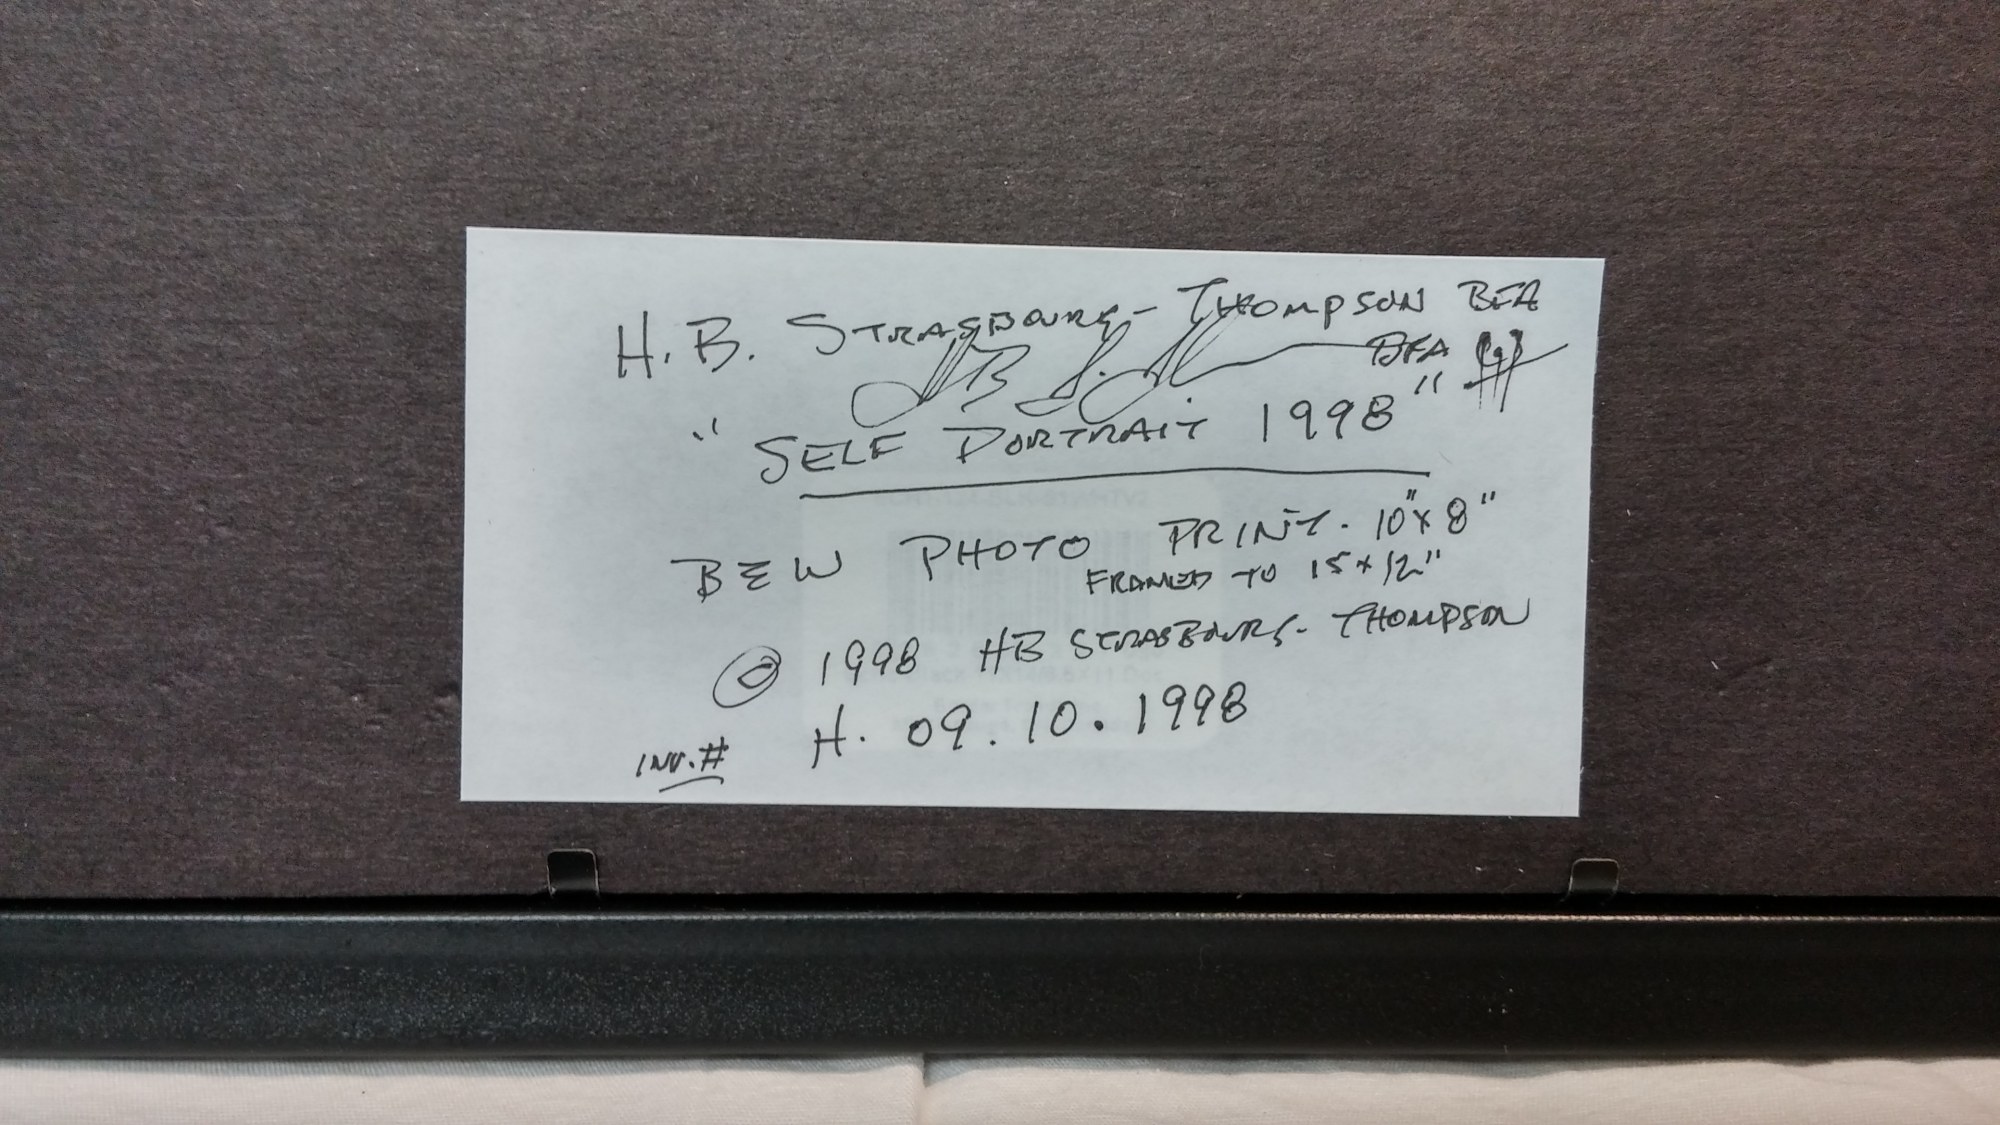 H.B. STRASBOURG-THOMPSON BFA
BFA
"SELF PORTRAIT 1998"
B&W PHOTO PRINT. 10"x8"
FRAMED TO 15x12"
© 1998 HB STRASBOURG-THOMPSON
INV.# H.09.10.1998